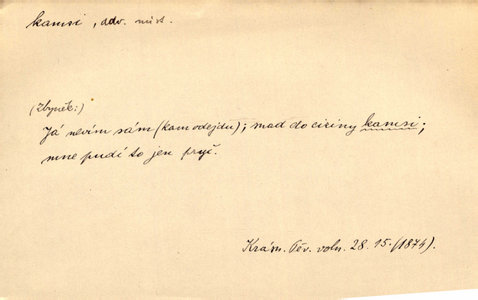 kamsi, adv. míst.
(Zbyněk:)
Já nevím sám (kam odejdu); snad do ciziny kamsi;
mne pudí to jen pryč.
Krám. Pěv. voln. 28. 15. (1874).